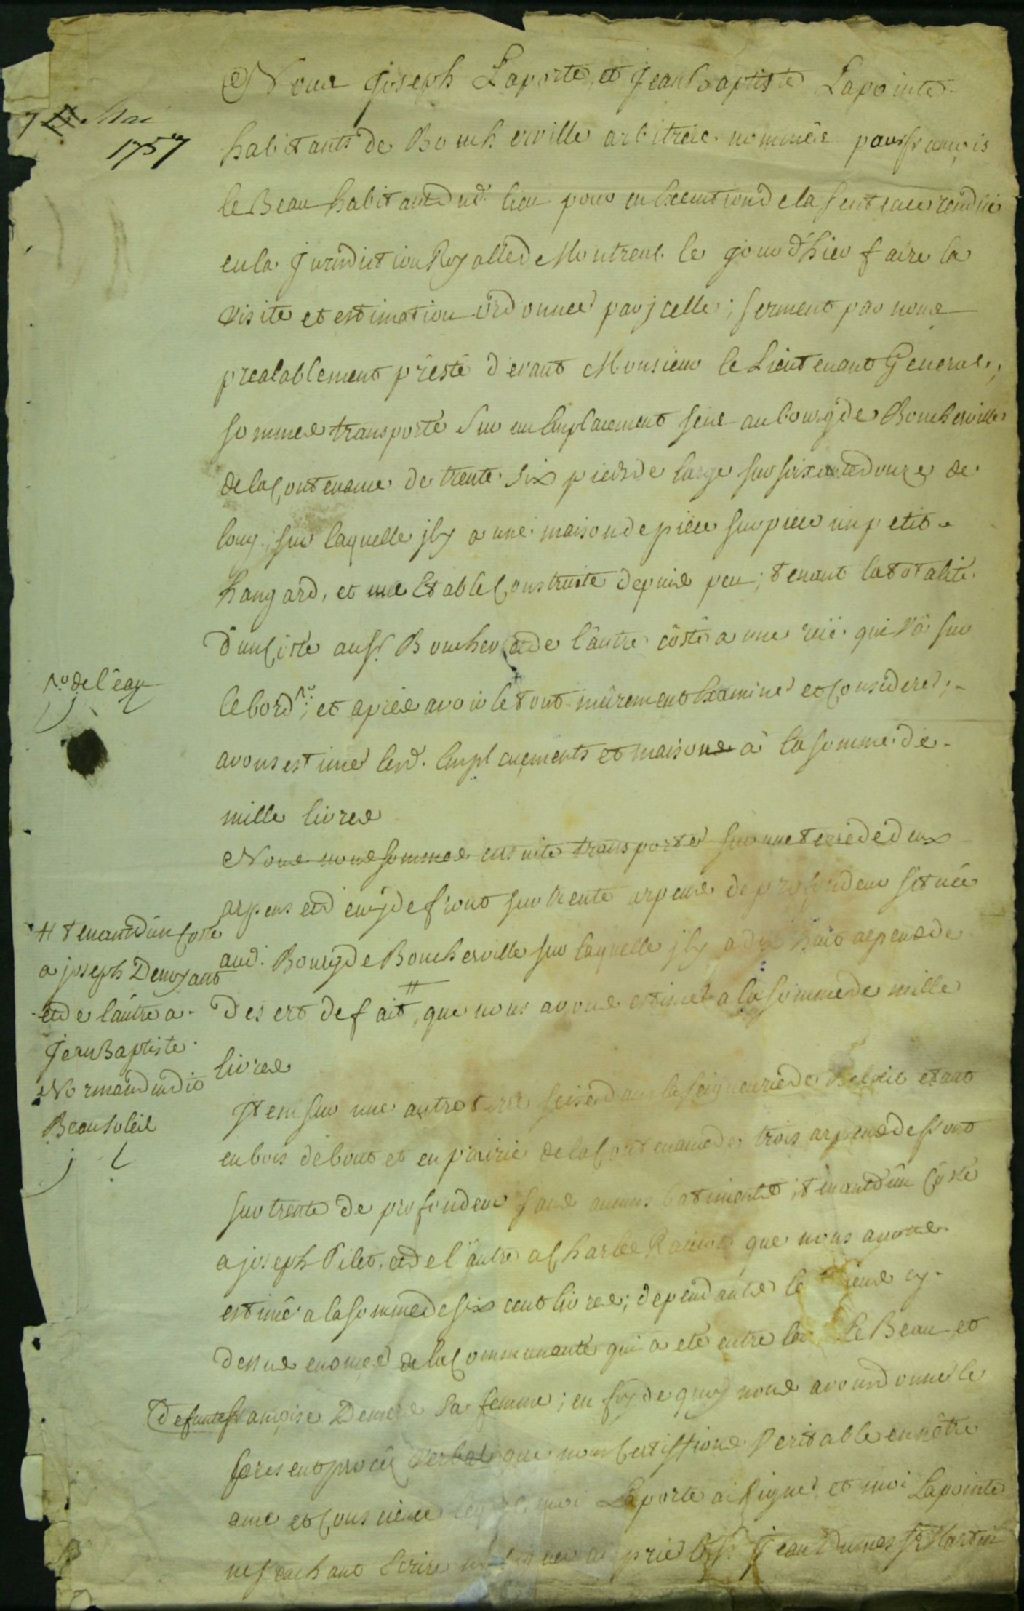 Nous Joseph Laporte, et Jean Baptiste Lapointe
7 Mai
1757
habitants de Boucherville arbitres nommés par françois
le Beau habitant dud. lieu pour en Execution de la sentence rendue
en la Juridiction Royalle de Montreal le jour d'hier faire la
visite et estimation ordonnée par jcelle; serment par nous
prealablement presté devant Monsieur le Lieutenant General,
sommes transporté sur un Emplacement scis au bourg de Boucherville
de la Contenance de trente six pieds de large sur soixante douze de
long, sur laquelle jl y a une maison de piece sur piece un petit
hangard, et une Etable Construite depuis peu; tenant la totalité
d'un Côté au Sr. Boucher et de l'autre côté a une rüe qui va sur
le bord; et aprés avoir le tout mûrement Examiné et Consideré;
de l'eau
avons estimé lesd. Emplacements et maisons à la somme de
mille livres
Nous nous sommes ensuite transporté sur une terre de deux
arpens et demy de front sur trente arpens de profondeur située
aud. Bourg de Boucherville sur laquelle jl y a dix huit arpens de
Desert de fait, # que nous avons estimé a la somme de mille
livres
# tenant d'un Coté
a joseph Denoyant
et de l'autre a
Jean Baptiste
Normandin dit
Beausoleil
Jtem sur une autre terre scise dans la seigneurie de Belœil etant
en bois debout et en prairie de la Contenance de trois arpens de front
sur trente de profondeur sans aucuns batiments; tenant d'un Côsté
a joseph Pilet, et de l'autre a Charles que nous avons
estimé a la somme de six cent livres; dependantes les biens cy
dessus enoncé de la Communauté qui a eté entre led. le Beau et
Defunte françoise Demers sa femme; en foy de quoy nous avons donné le
present procés verbal que nous Certiffions Veritable en nôtre
ame et Conscience moi Laporte a signé et moi Lapointe
ne sachant Ecrire prié le Sr. Jean Dumas St Martin